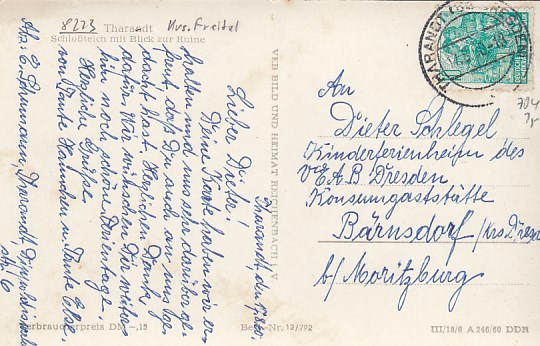 8223 Tharandt Krs. Freital
Schloßteich mit Blick zur Ruine
Tharandt, den 17.8.60.
Lieber Dieter!
Deine Karte haben wir er-
halten und uns sehr darüber ge-
freut, daß Du auch an uns ge-
dacht hast. Herzlichen Dank
dafür. Wir wünschen Dir weiter-
hin noch schöne Ferientage.
Herzliche Grüße
von Tante Hannchen u. Tante Else.
Abs: E. Lehmann, Tharandt,
Nr. 6
VEB BILD UND HEIMAT REICHENBACH i. V.
THARANDT (BZ DRESDEN)
An
Dieter Schlegel
Kinderferienheim des
VEAB Dresden
Konsumgaststätte
Bärnsdorf / Krs. Dresd
b/ Moritzburg
Verbraucherpreis DM –,15
Best.-Nr. 12/792
III/18/6 A 246/60 DDR